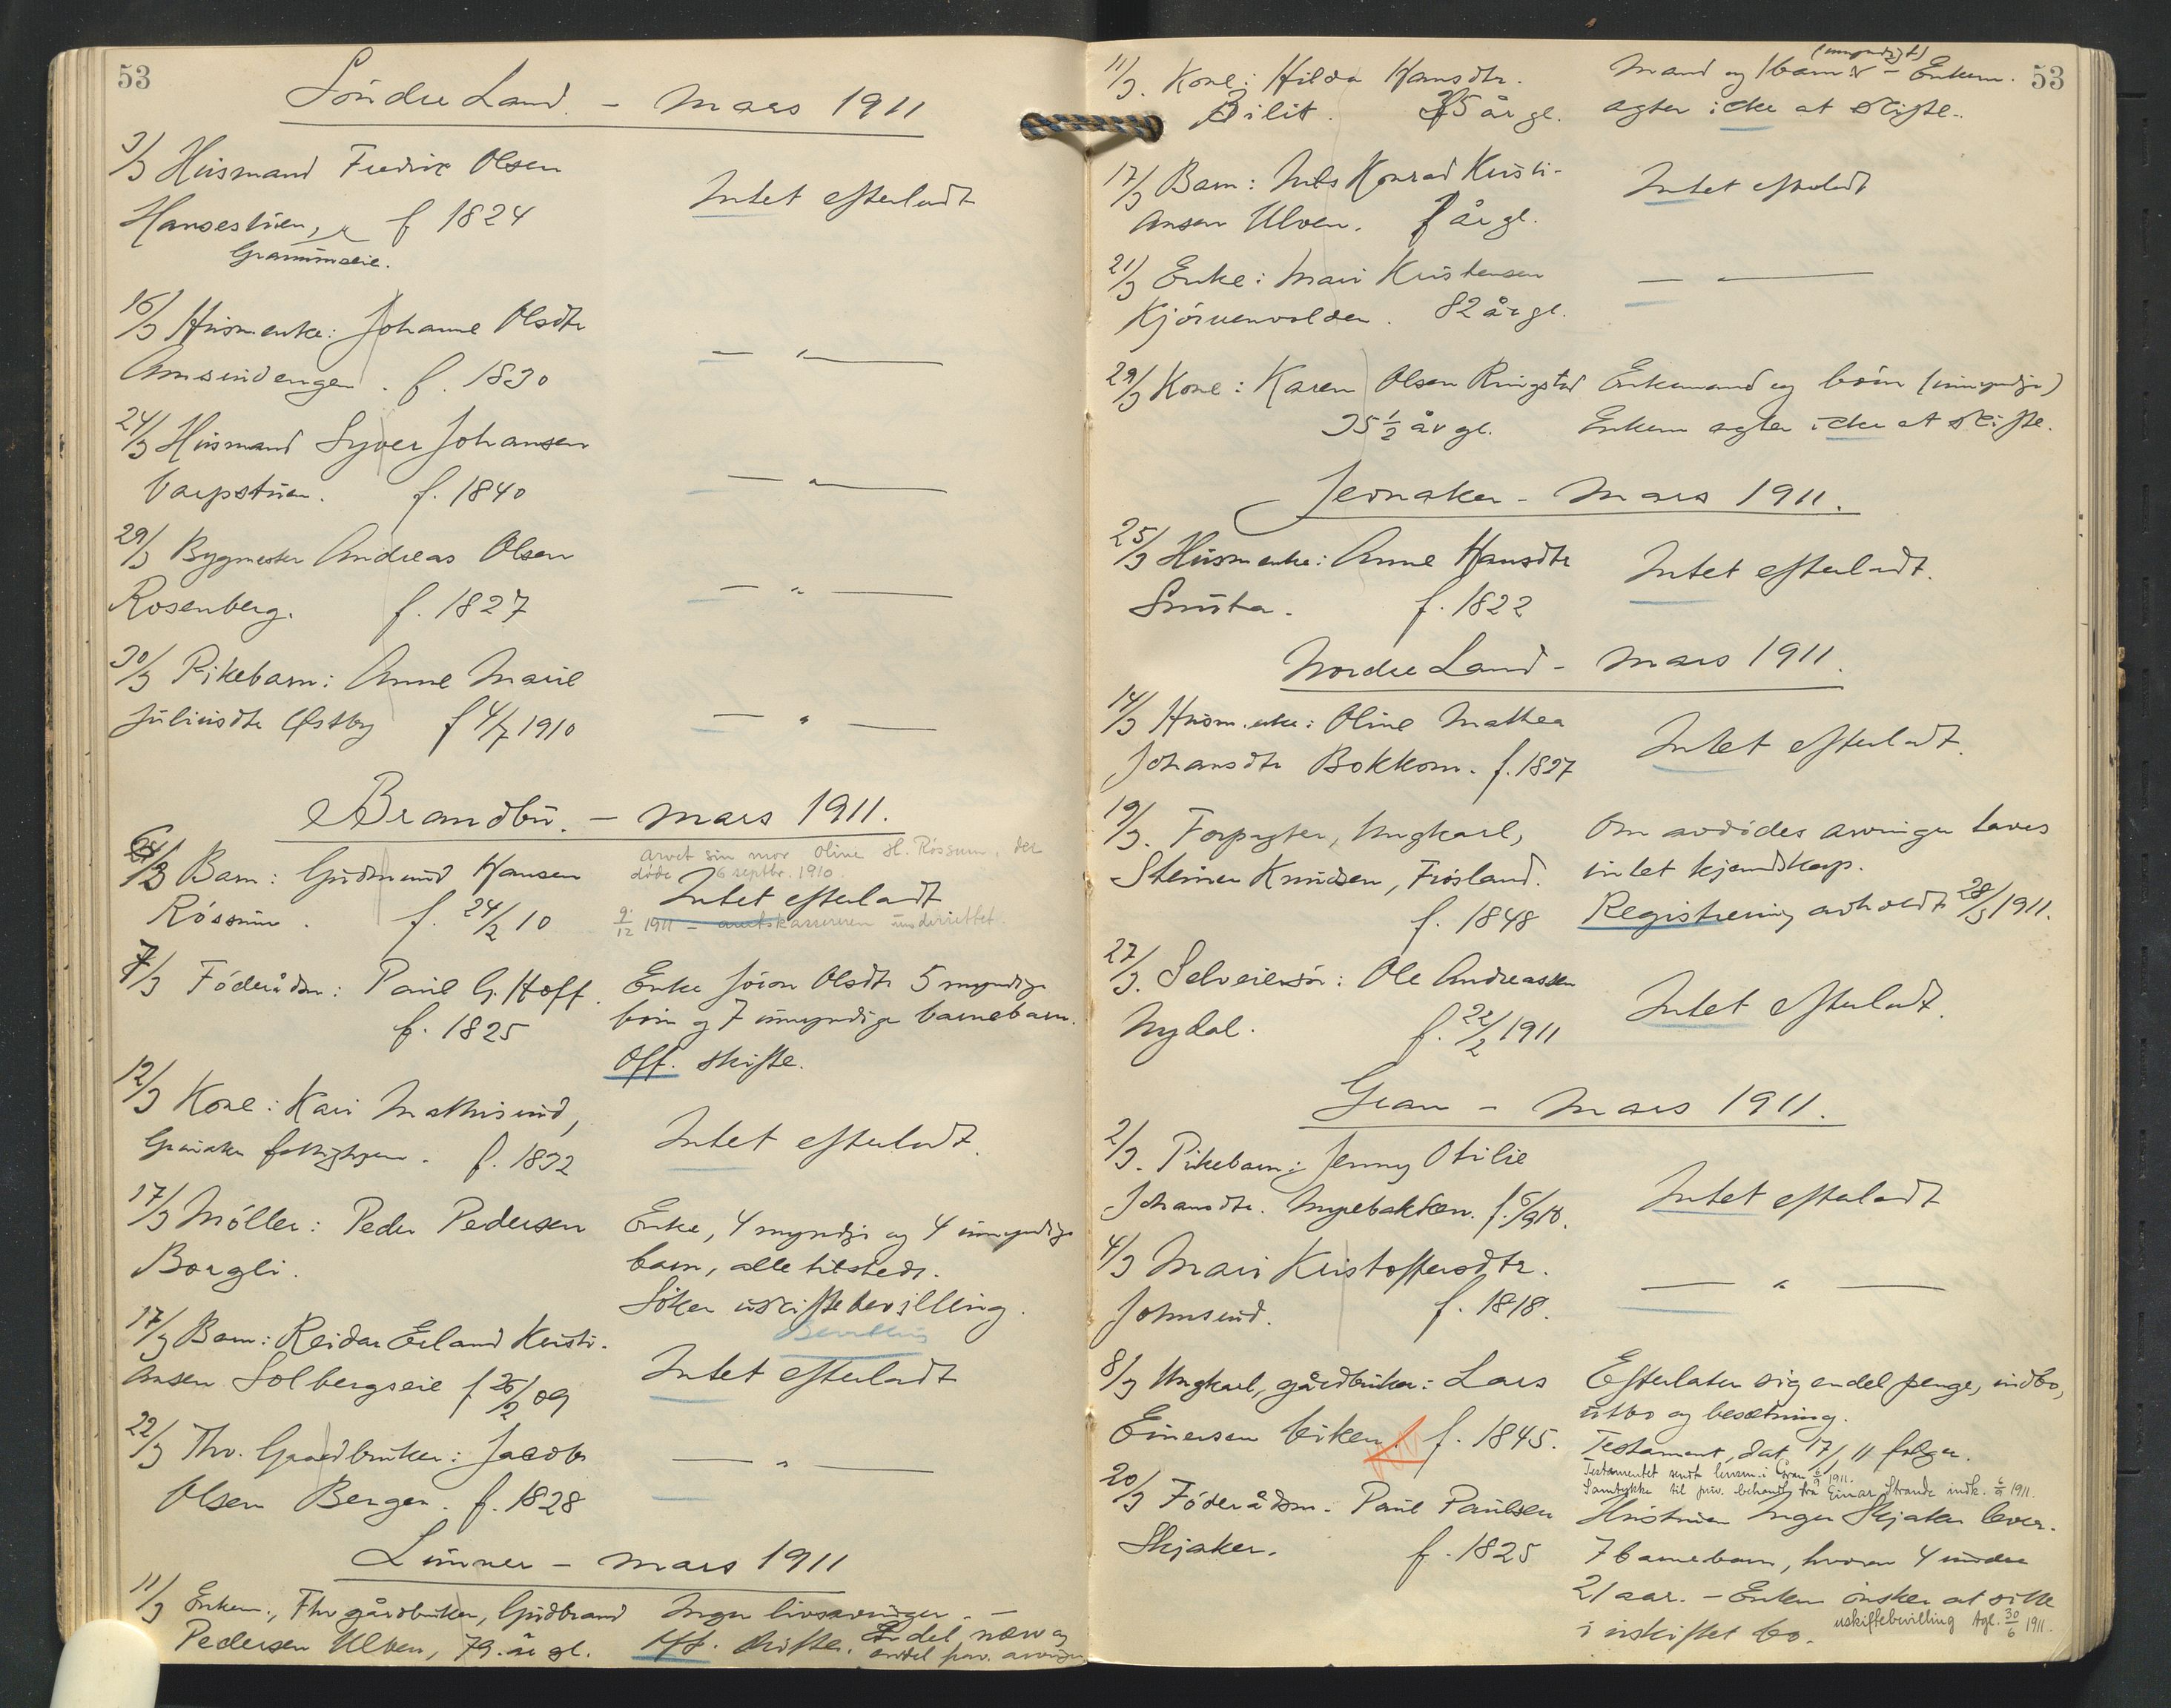 53
Söndre Land. - Mars 1911
3/3 Husmand Fredrik Olsen
Intet efterladt
Hansestuen, f 1824
16/3 Husm.enke: Johanne Olsdtr
— " —
f. 1830
24/3 Husmand Syver Johansen
— " —
Varpstuen. f. 1840
29/3 Bygmester Andreas Olsen
— " —
Rosenberg. f. 1827
30/3 Pikebarn: Anne Marie
Juliusdtr Østby f 4/7 1910
— " —
Brandbu. - Mars 1911.
Arvet sin mor Oline H. Róssum, der
døde 6 septbr. 1910.
Barn: Gudmund Hansen
Intet efterladt
Róssum. f. 24/2 10
9/12 1911 - amtskassereren underrettet.
7/3 Föderådsm: Paul G. Hoff.
f. 1825
Enke Jöron Olsdtr 5 myndige
börn og 7 umyndige barnebarn.
Off. skifte.
12/3 Kone: Kari Mathisrud,
fattighjem. f. 1832
Intet efterladt.
17/3 Möller: Peder Pedersen
Borgli.
Enke, 4 myndige og 4 umyndige
barn, alle tilstede.
Söker uskiftebevilling.
Bevilling
17/3 Barn: Reidar Erland Kristi-
ansen Solbergseie f 26/2 09
Intet efterladt
22/3 Fhv. Gaardbruker: Jacob
— " —
Olsen Bergen. f. 1828
Lunner - Mars 1911
11/3 Enkem., Fhv gårdbruker, Gudbrand
Pedersen Ulven, 79. år gl.
Ingen livsarvinger. -
Off. skifte. En del nærv og
endel frav. arvinger
53
11/3. Kone: Hilda Hansdtr.
Bilit. 35 år gl.
Mand og 1 barn (umyndigt) - Enkem.
agter icke at skifte.
17/3 Barn: Nils Konrad Kristi-
ansen Ulven. år gl.
Intet efterladt
21/3 Enke: Mari Kristensen
82 år gl.
— " —
29/3 Kone: Karen Olsen Ringstad
35 1/2 år gl.
Enkemand og börn (umyndige)
Enkem agter icke at skifte.
Jevnaker - Mars 1911.
25/3 Husm.enke: Anne Hansdtr
f. 1822
Intet efterladt.
Nordre Land - Mars 1911.
14/3 Husm.enke: Oline Mathea
Johansdtr Bokkom. f. 1827
Intet efterladt.
19/3. Forpagter, Ungkarl,
Steiner Knudsen, Frösland.
f. 1848
Om avdödes arvinger haves
intet kjendskap.
Registrering avholdt 28/3 1911.
27/3. Selveiersön: Ole Andreassen
Nydal. f. 22/2 1911
Intet efterladt.
Gran - Mars 1911.
2/3. Pikebarn: Jenny Otilie
Johansdtr. Myrebakken.
Intet efterladt
4/3 Mari Kristoffersdtr.
Johnsrud. f. 1818.
— " —
8/3 Ungkarl, gårdbruker: Lars
Einersen Viken f. 1845.
Efterlater sig endel penge, indbo,
utbo og besætning.
Testament, dat 17/1 11 følger.
Testamentet sendt lensm. i Gran 6/9 1911.
Samtykke til priv. behandl. fra Einar Strande indk. 6/9 1911.
20/3 Föderådsm. Paul Paulsen
Skjaker. f. 1825
Hustruen Inger Skjaker lever.
7 barnebarn, hvorav 4 under
21 aar. - Enken önsker at sitte
i uskiftet bo.
uskiftebevilling Agl. 30/6 1911.